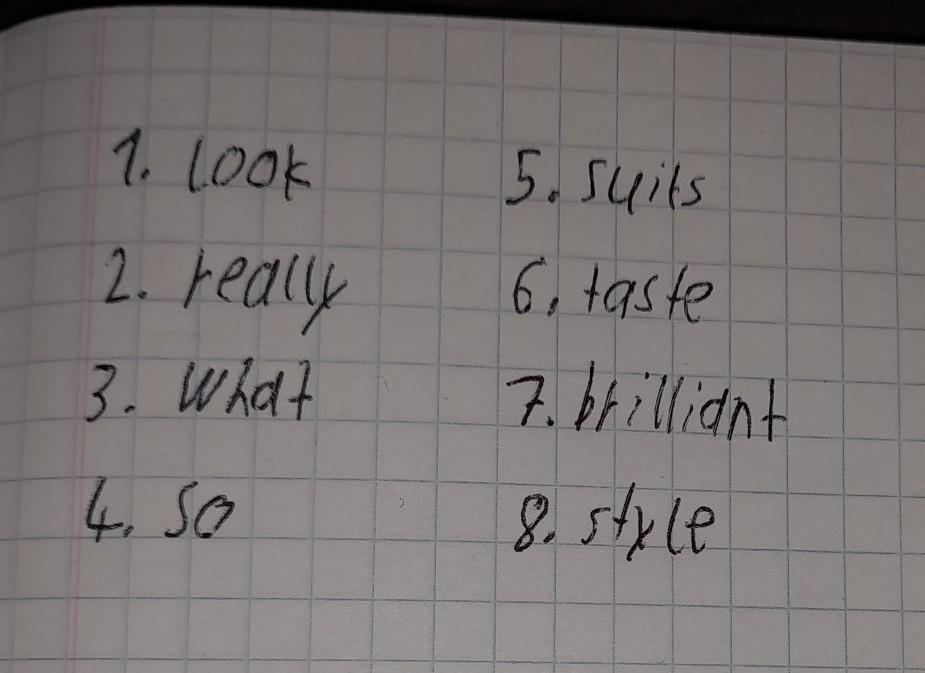 1. look
2. really
3. what
4. so
5. suits
6. taste
7. brilliant
8. style